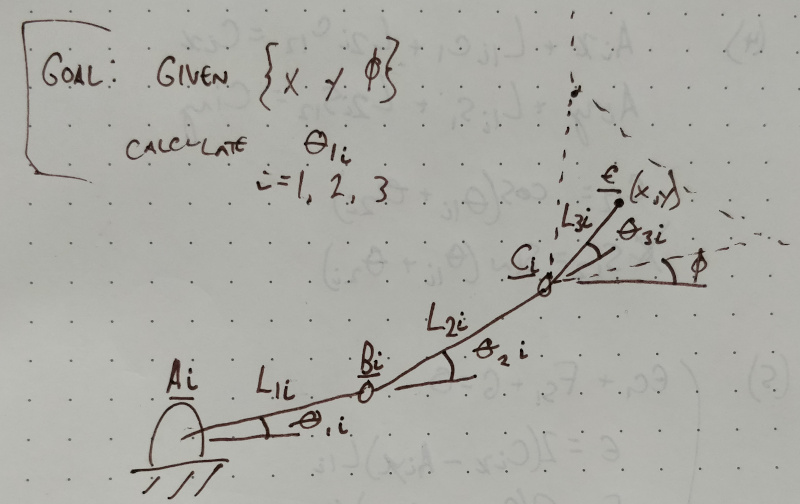 GOAL: GIVEN {X Y ϕ}
CALCULATE θ1i
i=1, 2, 3
E (X,Y)
L3i
θ3i
Ci
ϕ
L2i
Bi
θ2i
Ai
L1i
θ1i